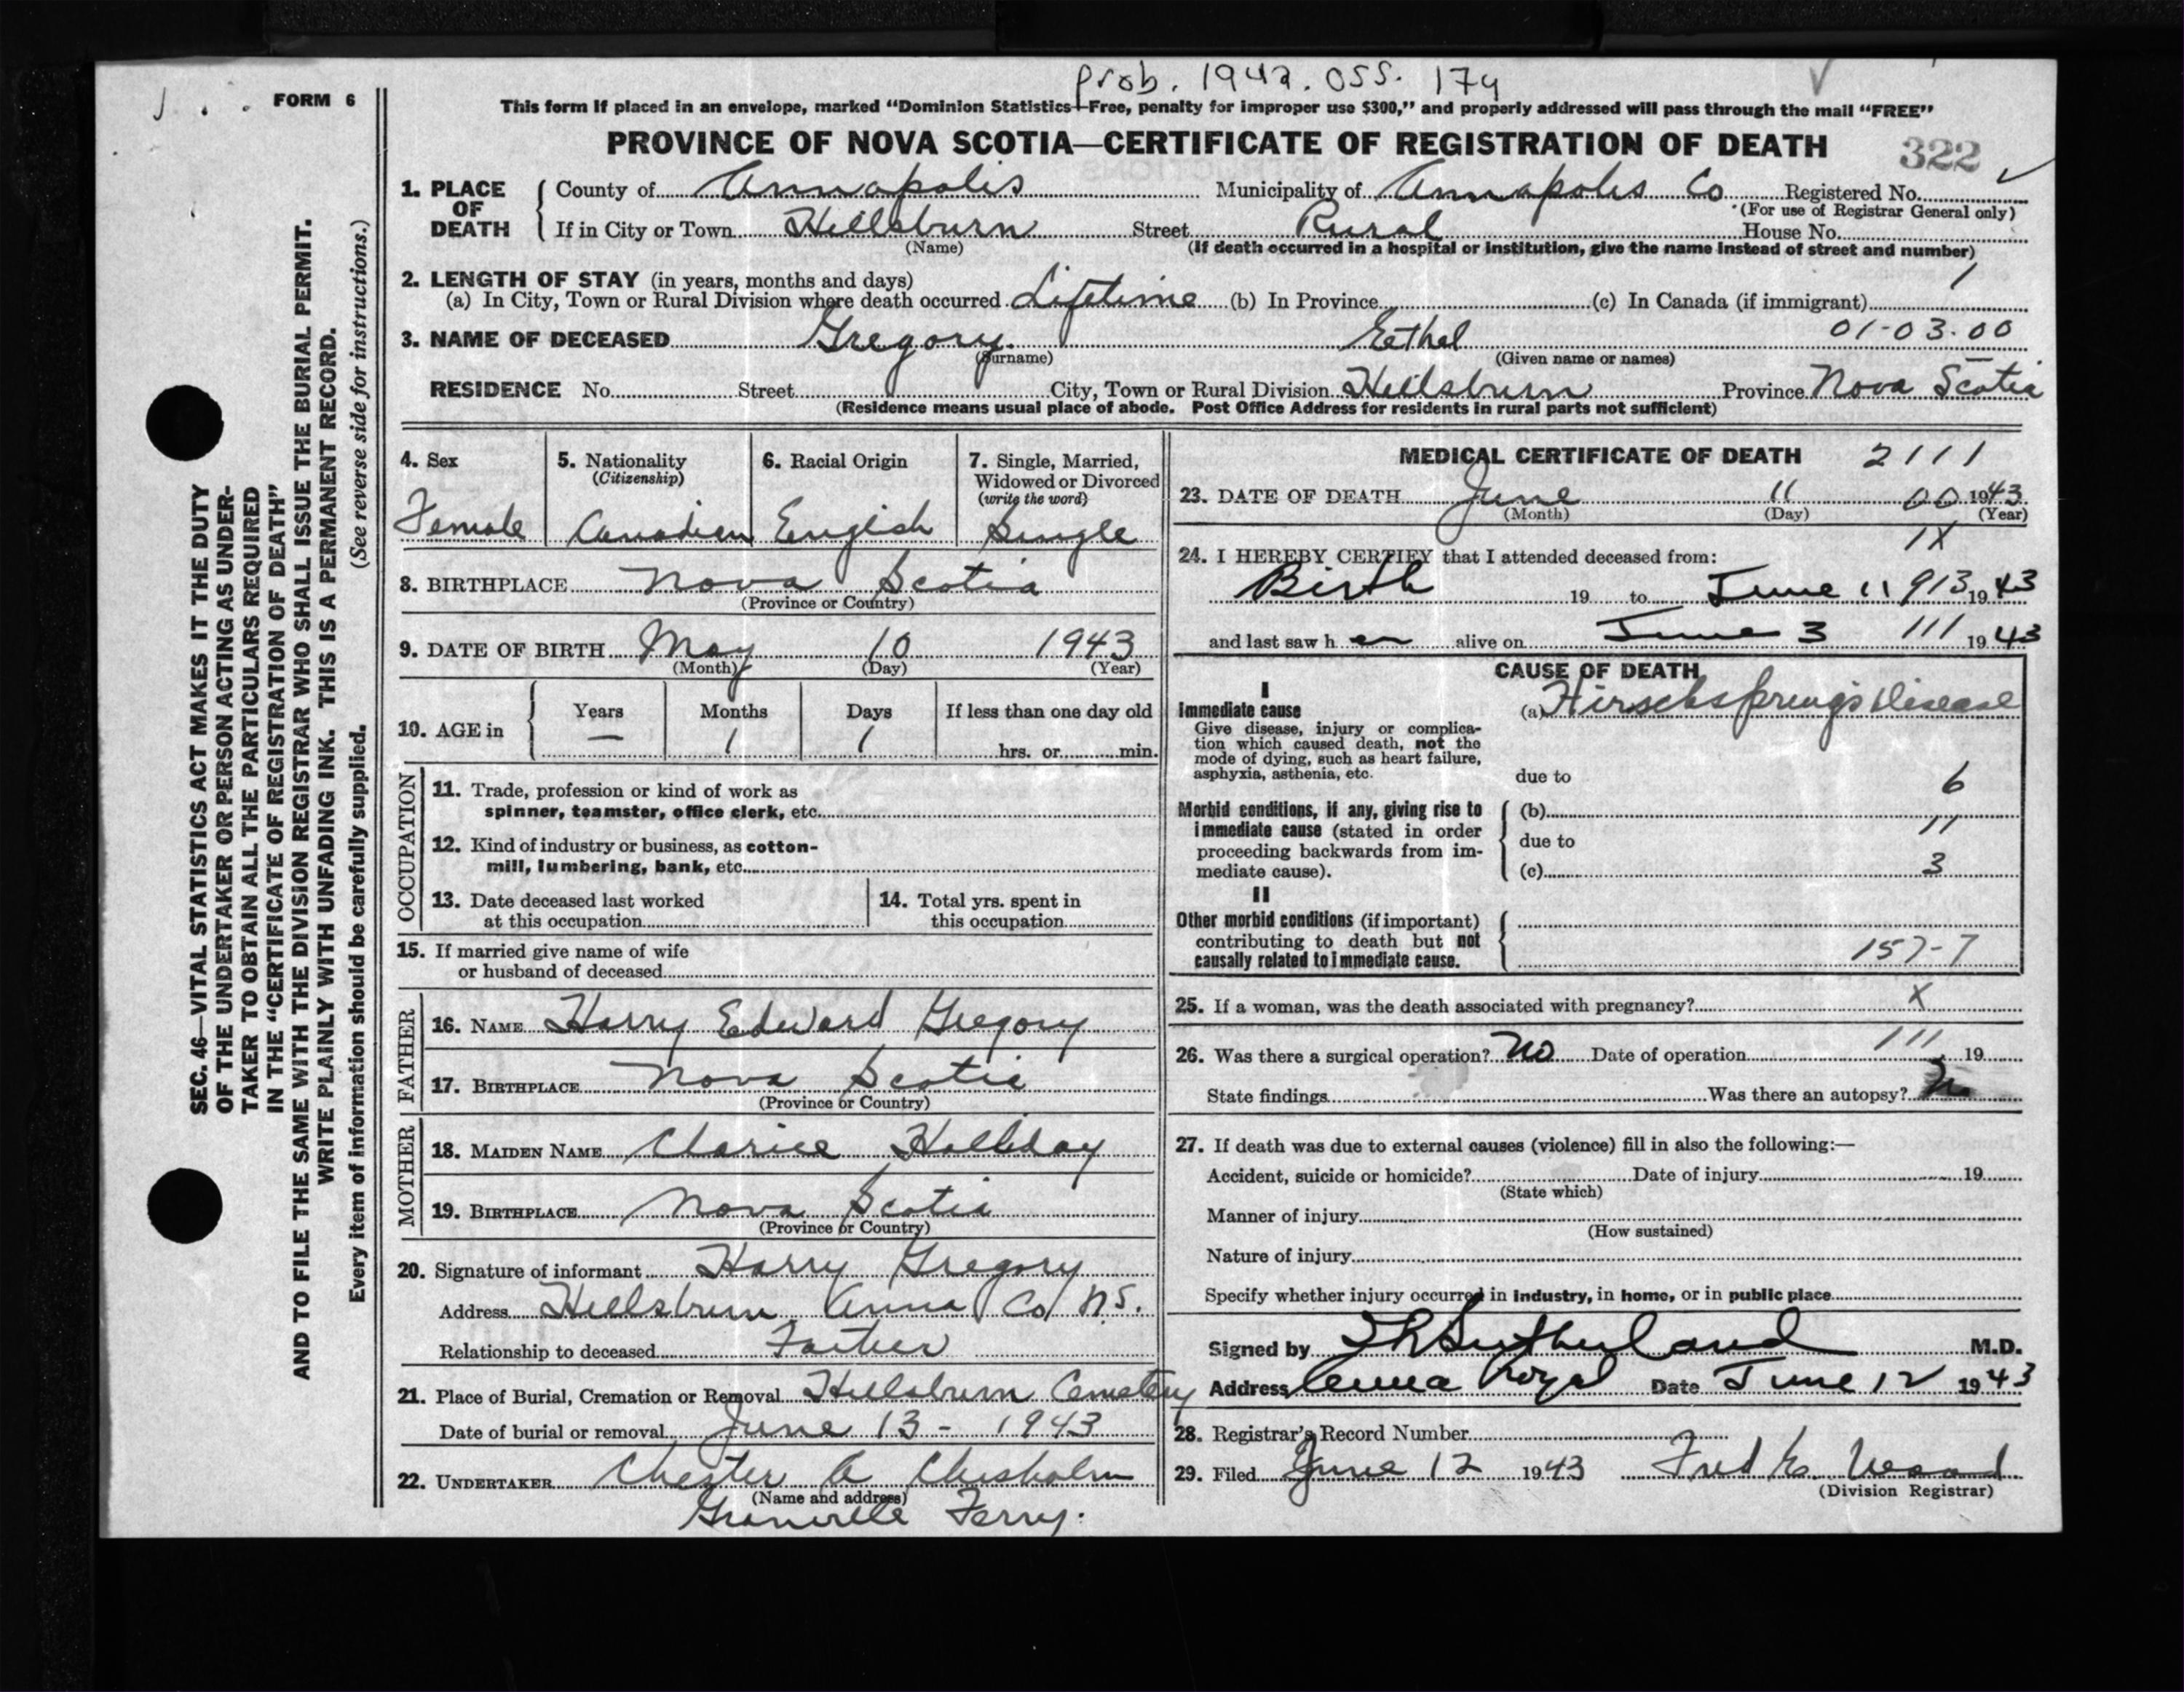 prob. 1942. OSS. 174
FORM 6
This form if placed in an envelope, marked "Dominion Statistics—Free, penalty for improper use $300," and properly addressed will pass through the mail "FREE"
PROVINCE OF NOVA SCOTIA—CERTIFICATE OF REGISTRATION OF DEATH
322
1. PLACE OF DEATH
County of Annapolis Municipality of Annapolis Co Registered No.
(For use of Registrar General only)
If in City or Town Hillsburn Street Rural House No.
(Name) (If death occurred in a hospital or institution, give the name instead of street and number)
2. LENGTH OF STAY (in years, months and days) 1
(a) In City, Town or Rural Division where death occurred Lifetime (b) In Province (c) In Canada (if immigrant)
3. NAME OF DECEASED Gregory. Ethel 01-03-00
(Surname) (Given name or names)
RESIDENCE No. Street City, Town or Rural Division Hillsburn Province Nova Scotia
(Residence means usual place of abode. Post Office Address for residents in rural parts not sufficient)
4. Sex
Female
5. Nationality
(Citizenship)
Canadian
6. Racial Origin
English
7. Single, Married,
Widowed or Divorced
(write the word)
Single
8. BIRTHPLACE Nova Scotia
(Province or Country)
9. DATE OF BIRTH May 10 1943
(Month) (Day) (Year)
10. AGE in
Years Months Days If less than one day old
— 1 1 hrs. or min.
OCCUPATION
11. Trade, profession or kind of work as
spinner, teamster, office clerk, etc.
12. Kind of industry or business, as cotton-
mill, lumbering, bank, etc.
13. Date deceased last worked
at this occupation
14. Total yrs. spent in
this occupation
15. If married give name of wife
or husband of deceased
FATHER
16. NAME Harry Edward Gregory
17. BIRTHPLACE Nova Scotia
(Province or Country)
MOTHER
18. MAIDEN NAME Clarice Halliday
19. BIRTHPLACE Nova Scotia
(Province or Country)
20. Signature of informant Harry Gregory
Address Hillsburn Anna Co N.S.
Relationship to deceased Father
21. Place of Burial, Cremation or Removal Hillsburn Cemetery
Date of burial or removal June 13 - 1943
22. UNDERTAKER Chester A Chisholm
(Name and address)
Granville Ferry.
MEDICAL CERTIFICATE OF DEATH 2111
23. DATE OF DEATH June 11 00 1943
(Month) (Day) (Year)
1X
24. I HEREBY CERTIFY that I attended deceased from:
Birth 19 to June 11 913 1943
and last saw her alive on June 3 111 1943
CAUSE OF DEATH
I
Immediate cause
Give disease, injury or complica-
tion which caused death, not the
mode of dying, such as heart failure,
asphyxia, asthenia, etc.
(a) Hirschsprung's Disease
due to 6
Morbid conditions, if any, giving rise to
immediate cause (stated in order
proceeding backwards from im-
mediate cause).
(b)
due to 11
(c) 3
II
Other morbid conditions (if important)
contributing to death but not
causally related to immediate cause.
157-7
25. If a woman, was the death associated with pregnancy? X
26. Was there a surgical operation? No Date of operation 111 19
State findings Was there an autopsy? No
27. If death was due to external causes (violence) fill in also the following:—
Accident, suicide or homicide? Date of injury 19
(State which)
Manner of injury
(How sustained)
Nature of injury
Specify whether injury occurred in industry, in home, or in public place
Signed by Sutherland M.D.
Address Anna Royal Date June 12 1943
28. Registrar's Record Number
29. Filed June 12 1943 Fred E. Wood
(Division Registrar)
SEC. 46—VITAL STATISTICS ACT MAKES IT THE DUTY
OF THE UNDERTAKER OR PERSON ACTING AS UNDER-
TAKER TO OBTAIN ALL THE PARTICULARS REQUIRED
IN THE "CERTIFICATE OF REGISTRATION OF DEATH"
AND TO FILE THE SAME WITH THE DIVISION REGISTRAR WHO SHALL ISSUE THE BURIAL PERMIT.
WRITE PLAINLY WITH UNFADING INK. THIS IS A PERMANENT RECORD.
Every item of information should be carefully supplied. (See reverse side for instructions.)